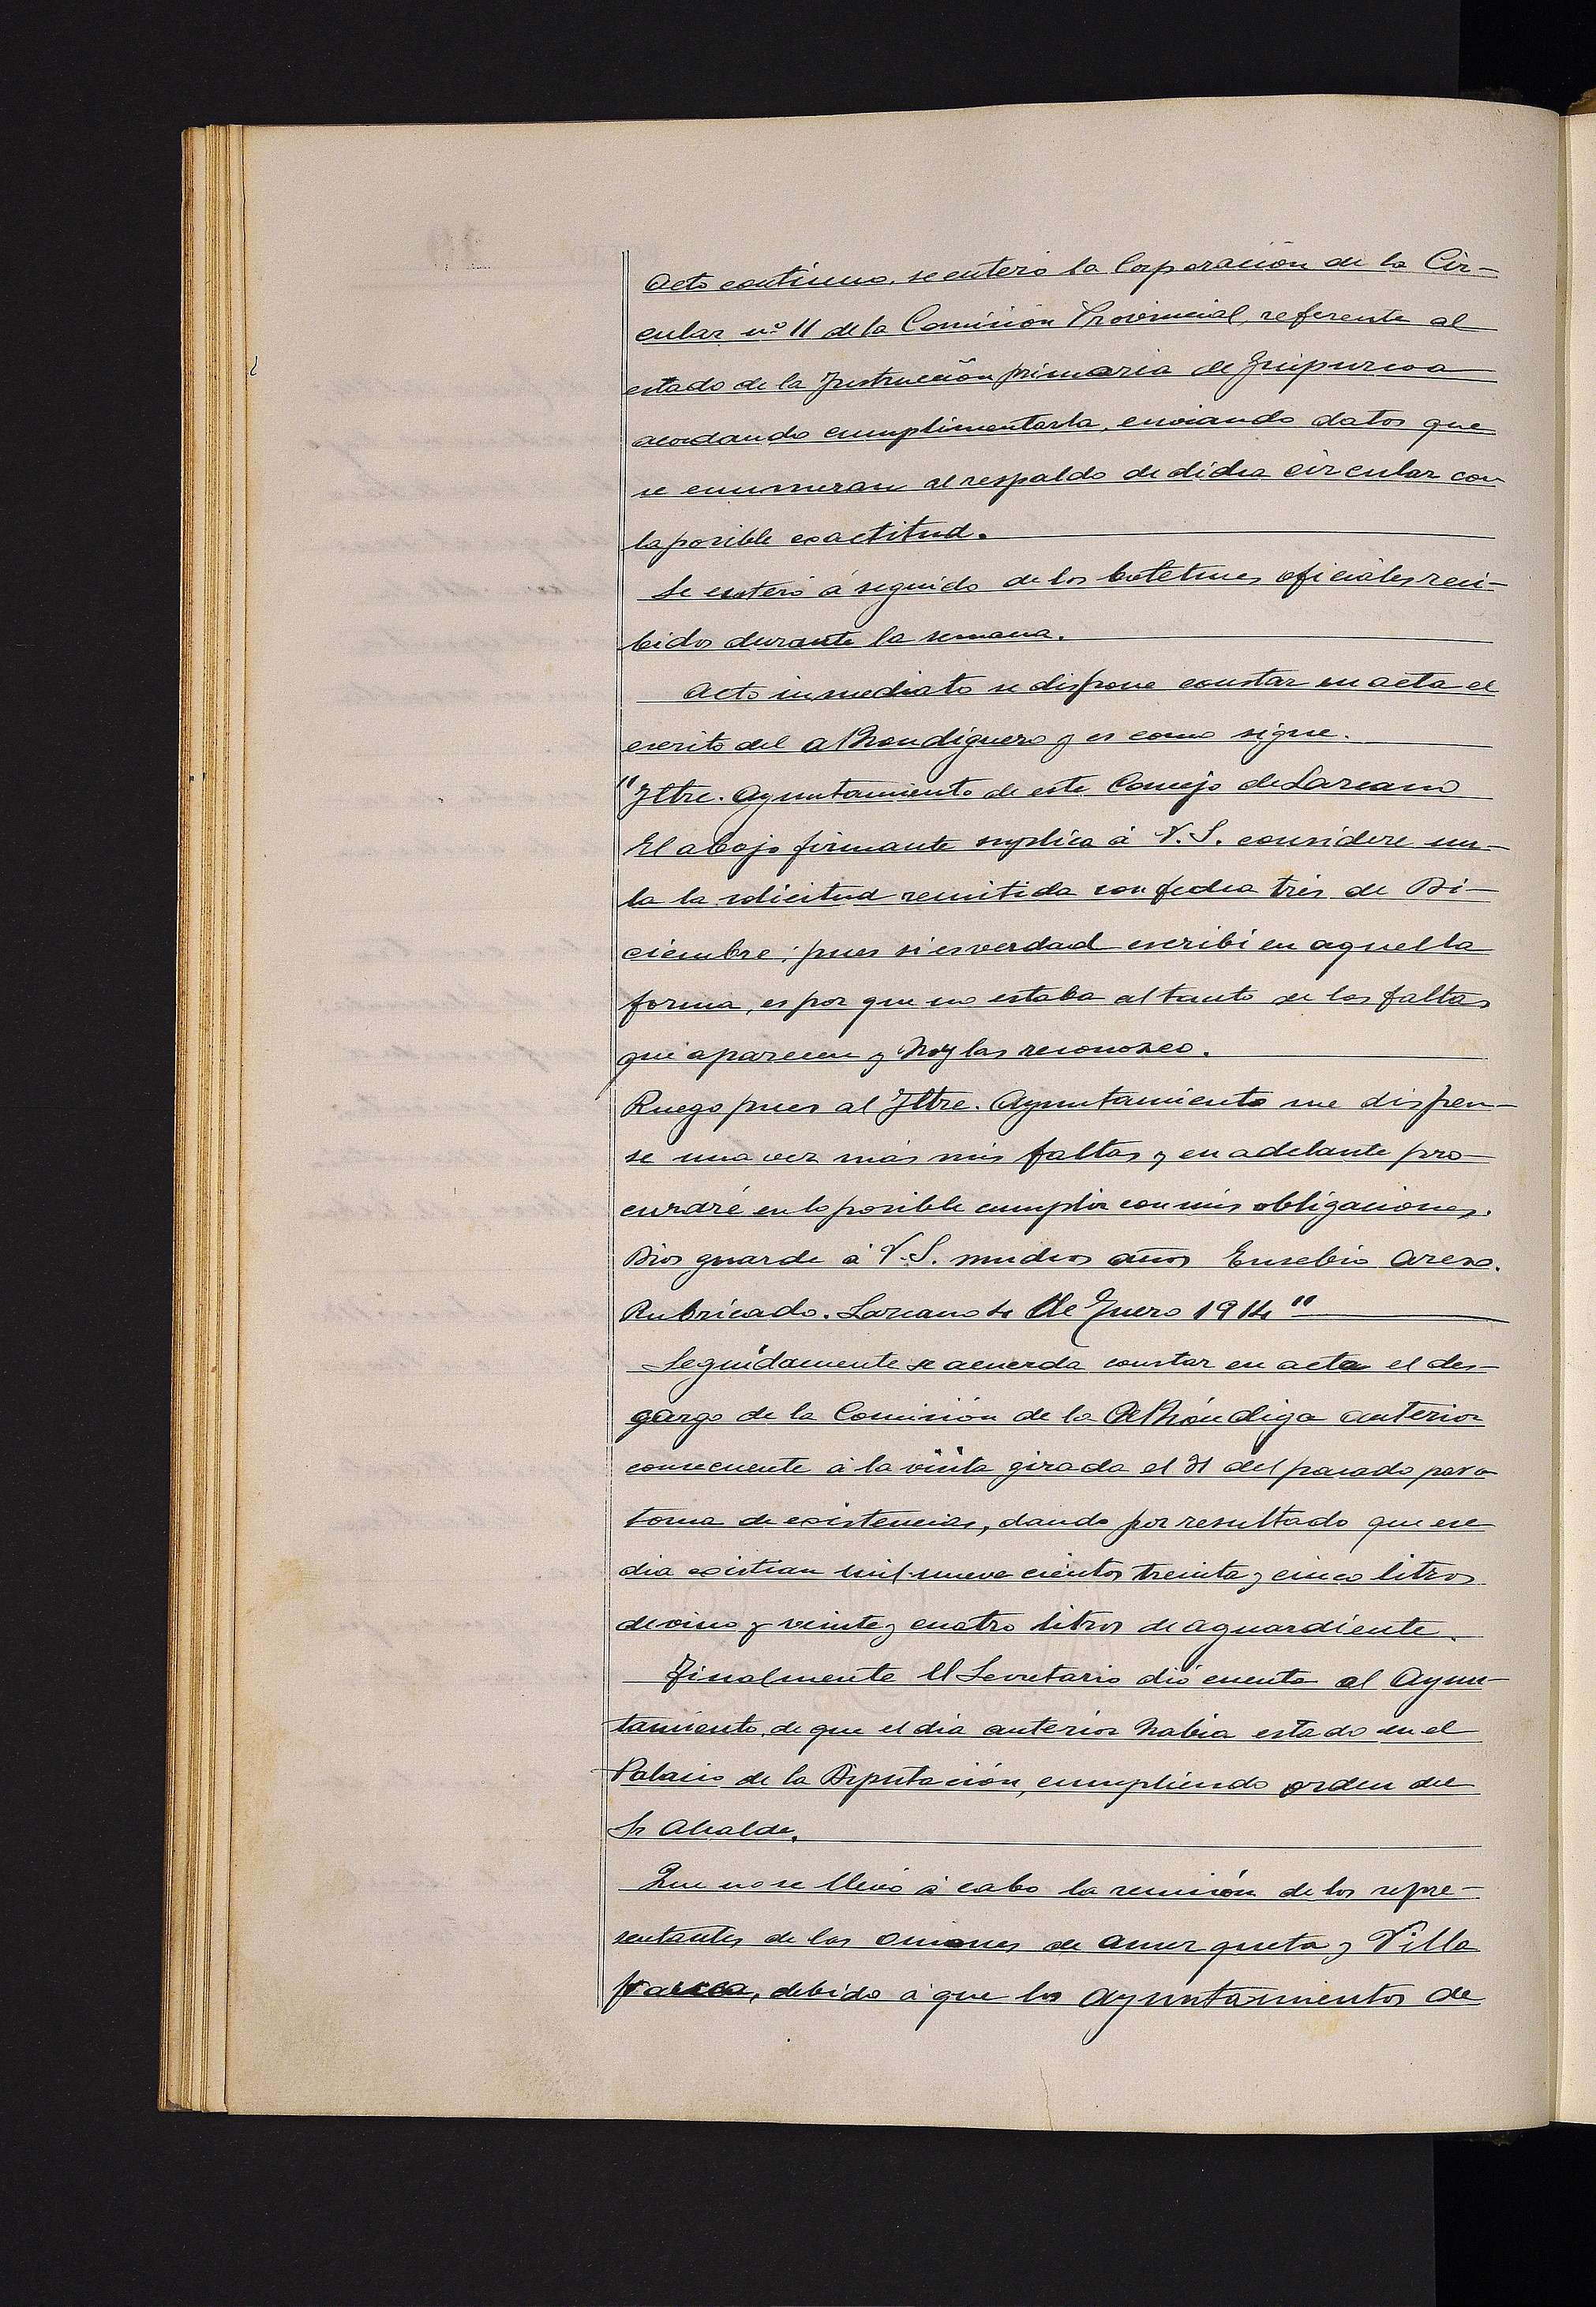 Acto continuo, se enteró la Corporación de la Cir-
cular nº 11 de la Comisión Provincial, referente al
estado de la Instrucción primaria de Guipuzcoa
acordando cumplimentarla, enviando datos que
se enumeran al respaldo de dicha circular con
la posible exactitud.
Se enteró á seguido de los boletines oficiales reci-
bidos durante la semana.
Acto inmediato se dispone constar en acta el
escrito del alhondiguero y es como sigue.
"Iltre. Ayuntamiento de este Concejo de Lazcano
El abajo firmante suplica á V.S. considere nu-
la la solicitud remitida con fecha tres de Di-
ciembre; pues si es verdad escribi en aquella
forma, es por que no estaba al tanto de las faltas
que aparecen y hoy las reconozco.
Ruego pues al Iltre. Ayuntamiento me dispen-
se una vez más mis faltas y en adelante pro-
curaré en lo posible cumplir con mis obligaciones.
Dios guarde á V.S. muchos años Eusebio Areso.
Rubricado. Lazcano 4 de Enero 1914"
Seguidamente se acuerda constar en acta el des-
gargo de la Comisión de la Alhóndiga anterior
consecuente á la visita girada el 31 del pasado para
toma de existencias, dando por resultado que ese
dia existian mil nueve cientos treinta y cinco litros
de vino y veinte y cuatro litros de aguardiente.
Finalmente el Secretario dió cuenta al Ayun-
tamiento, de que el dia anterior habia estado en el
Palacio de la Diputación, cumpliendo orden del
Sr Alcalde.
Que no se llevó á cabo la reunión de los repre-
sentantes de las Uniones de Amezqueta y Villa
franca, debido á que los Ayuntamientos de